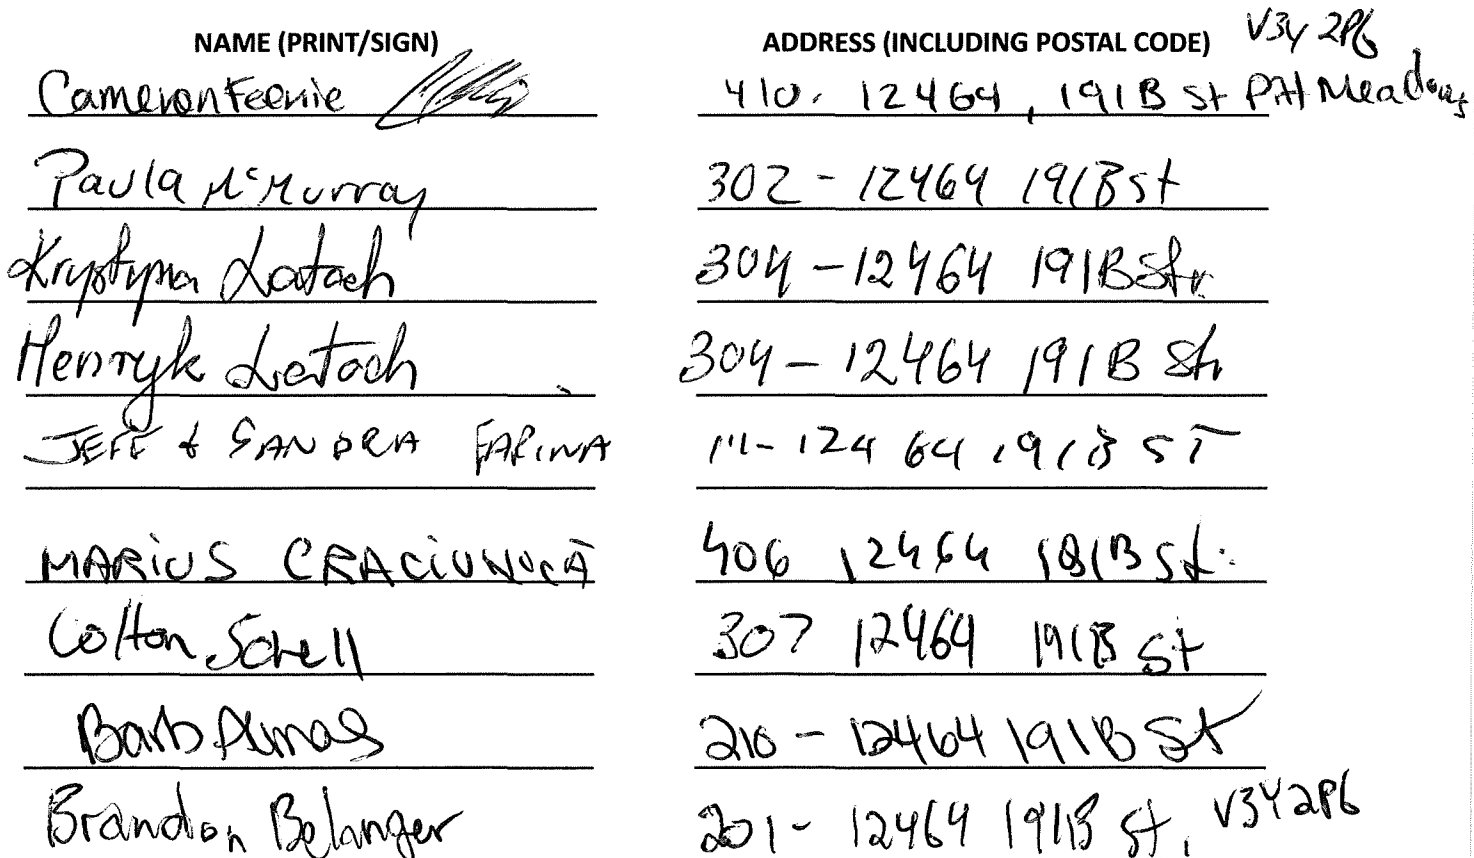 NAME (PRINT/SIGN) ADDRESS (INCLUDING POSTAL CODE) V3Y 2P6
Cameron Feenie 410. 12464, 191B St Pitt Meadows
Paula McMurray 302 - 12464 191B St
Krystyna Latach 304 - 12464 191B Str
Henryk Latach 304 - 12464 191B Str
JEFF & SANDRA FARINA 111 - 12464 191B ST
MARIUS CRACIUNICĂ 406 12464 191B St.
Colton Schell 307 12464 191B St
Barb Almas 210 - 12464 191B St
Brandon Belanger 201 - 12464 191B St, V3Y2P6